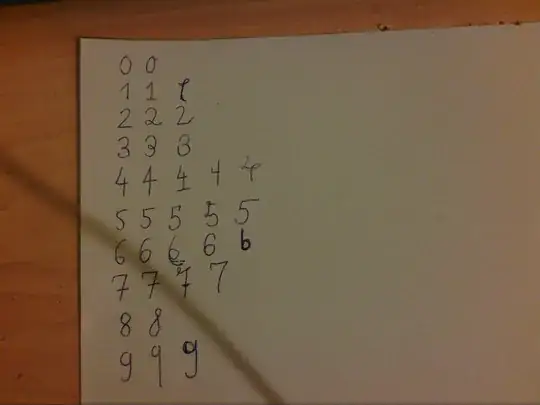 0 0
1 1 1
2 2 2
3 3 3
4 4 4 4 4
5 5 5 5 5
6 6 6 6 6
7 7 7 7
8 8
9 9 9